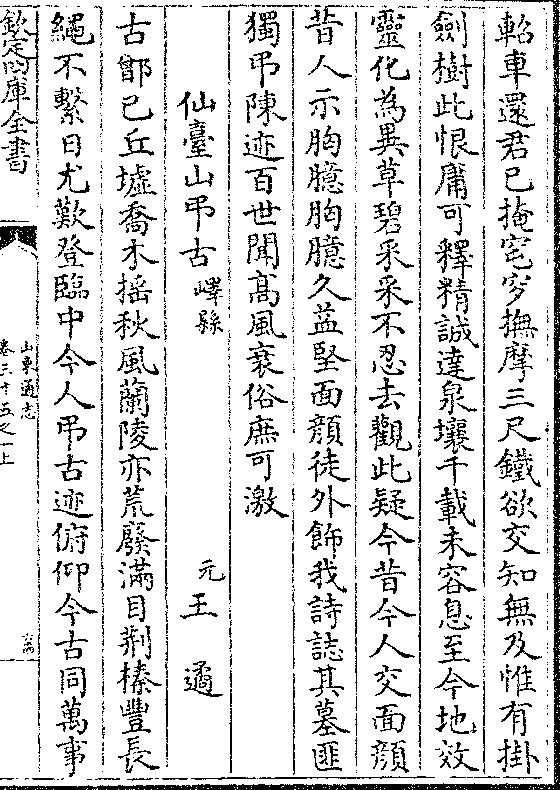 軺車還君已掩窀穸撫摩三尺鐵欲交知無及惟有掛
劍樹此恨庸可釋精誠達泉壤千載未容息至今地效
靈化為異草碧采采不忍去觀此疑今昔今人交面顔
昔人示胸臆胸臆久益堅面顔徒外飾我詩誌其墓匪
獨弔陳迹百世聞髙風衰俗庶可激
仙臺山弔古 嶧縣 元 王 遹
古鄫已丘墟喬木揺秋風蘭陵亦荒廢滿目荆榛豐長
繩不繫日尤歎登臨中今人弔古迹俯仰今古同萬事
欽定四庫全書
山東通志
卷三十五之一上